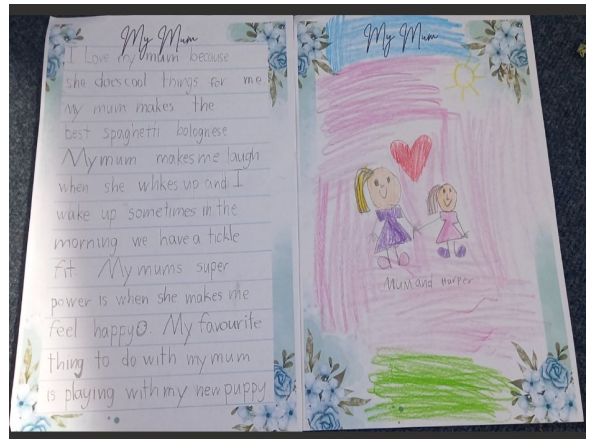 My Mum
I Love my mum because
she does cool things for me
My mum makes the
best spaghetti bolognese
My mum makes me laugh
when she whkes up and I
wake up sometimes in the
morning we have a tickle
fit. My mums super
power is when she makes me
feel happy☺. My favourite
thing to do with my mum
is playing with my new puppy
My Mum
Mum and Harper